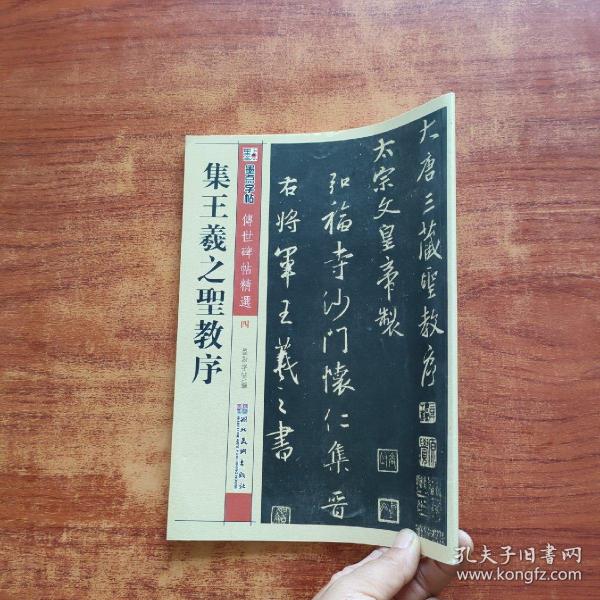 大唐三藏聖教序
太宗文皇帝製
弘福寺沙門懷仁集晋
右將軍王羲之書
墨点字帖
傳世碑帖精選
四
墨点字帖 編
湖北美術出版社
集王羲之聖教序
孔夫子旧書网
www.kongfz.com